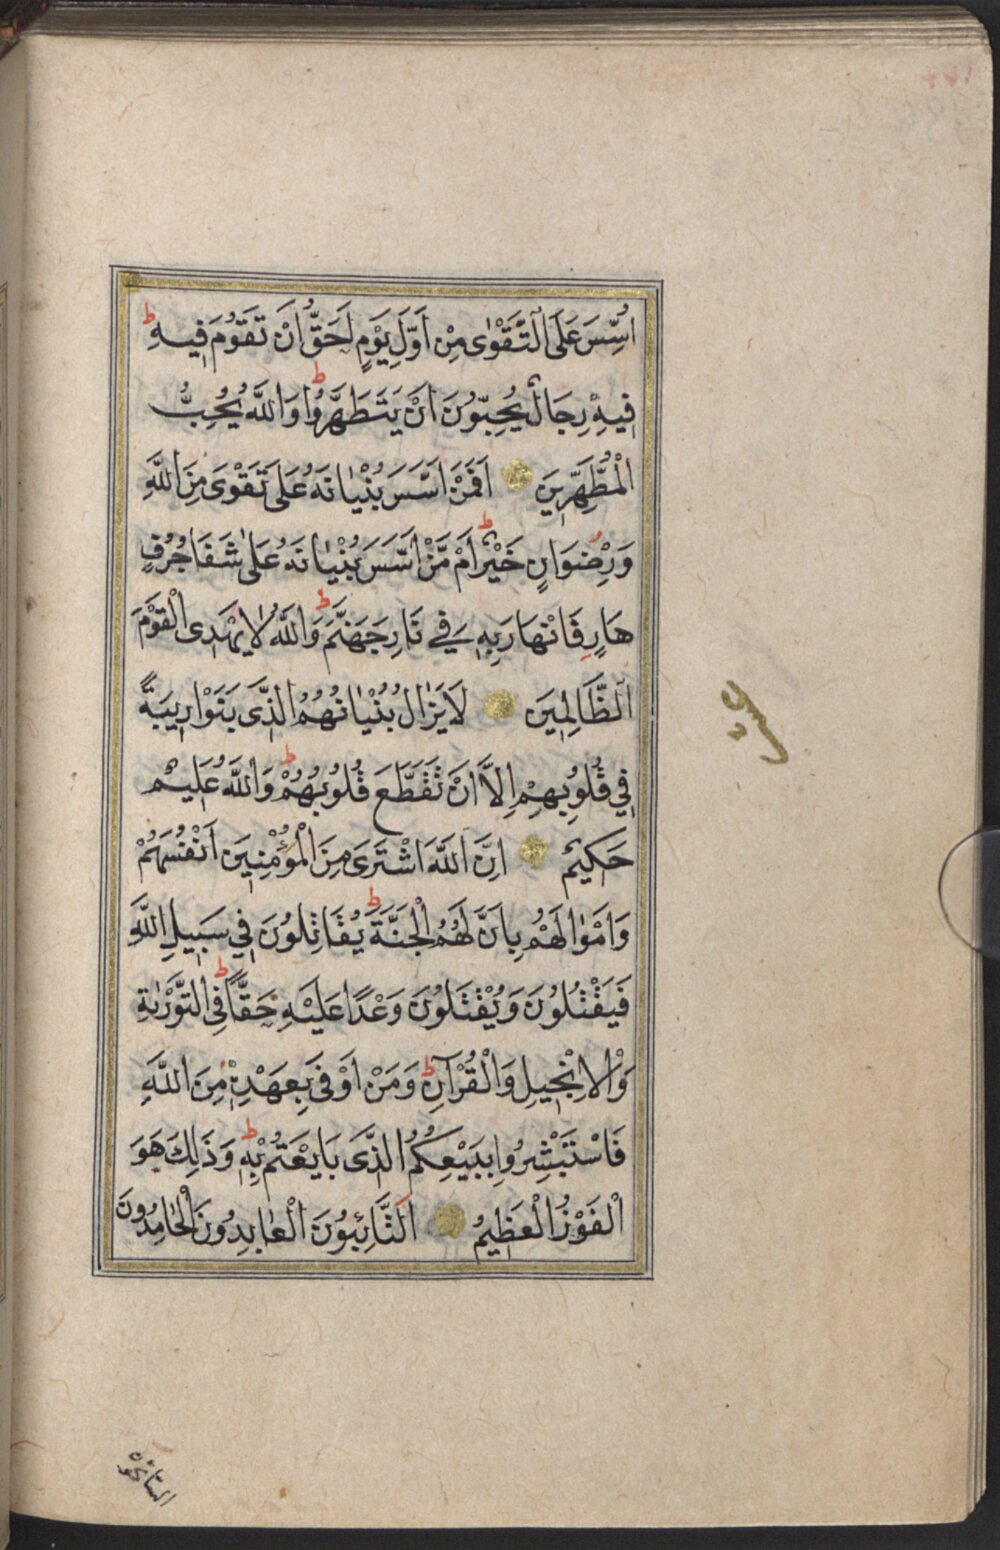 اُسِّسَ عَلَى التَّقْوٰى مِنْ اَوَّلِ يَوْمٍ اَحَقُّ اَنْ تَقُومَ فِيهِ ط
فِيهِ رِجَالٌ يُحِبُّونَ اَنْ يَتَطَهَّرُوا ط وَاللّٰهُ يُحِبُّ
الْمُطَّهِّرِينَ اَفَمَنْ اَسَّسَ بُنْيَانَهُ عَلَى تَقْوَى مِنَ اللّٰهِ
وَرِضْوَانٍ خَيْرٌ ط اَمْ مَنْ اَسَّسَ بُنْيَانَهُ عَلٰى شَفَا جُرُفٍ
هَارٍ فَانْهَارَ بِهِ فِي نَارِ جَهَنَّمَ ط وَاللّٰهُ لَا يَهْدِى الْقَوْمَ
الظَّالِمِينَ لَا يَزَالُ بُنْيَانُهُمُ الَّذِى بَنَوْا رِيبَةً
فِي قُلُوبِهِمْ اِلَّا اَنْ تَقَطَّعَ قُلُوبُهُمْ ط وَاللّٰهُ عَلِيمٌ
حَكِيمٌ اِنَّ اللّٰهَ اشْتَرَى مِنَ الْمُؤْمِنِينَ اَنْفُسَهُمْ
وَاَمْوَالَهُمْ بِاَنَّ لَهُمُ الْجَنَّةَ ط يُقَاتِلُونَ فِي سَبِيلِ اللّٰهِ
فَيَقْتُلُونَ وَيُقْتَلُونَ وَعْدًا عَلَيْهِ حَقًّا ط فِي التَّوْرٰيةِ
وَالْاِنْجِيلِ وَالْقُرْآنِ ط وَمَنْ اَوْفٰى بِعَهْدِهِ مِنَ اللّٰهِ
فَاسْتَبْشِرُوا بِبَيْعِكُمُ الَّذِى بَايَعْتُمْ بِهِ ط وَذٰلِكَ هُوَ
الْفَوْزُ الْعَظِيمُ اَلتَّائِبُونَ الْعَابِدُونَ الْحَامِدُونَ
السائحون